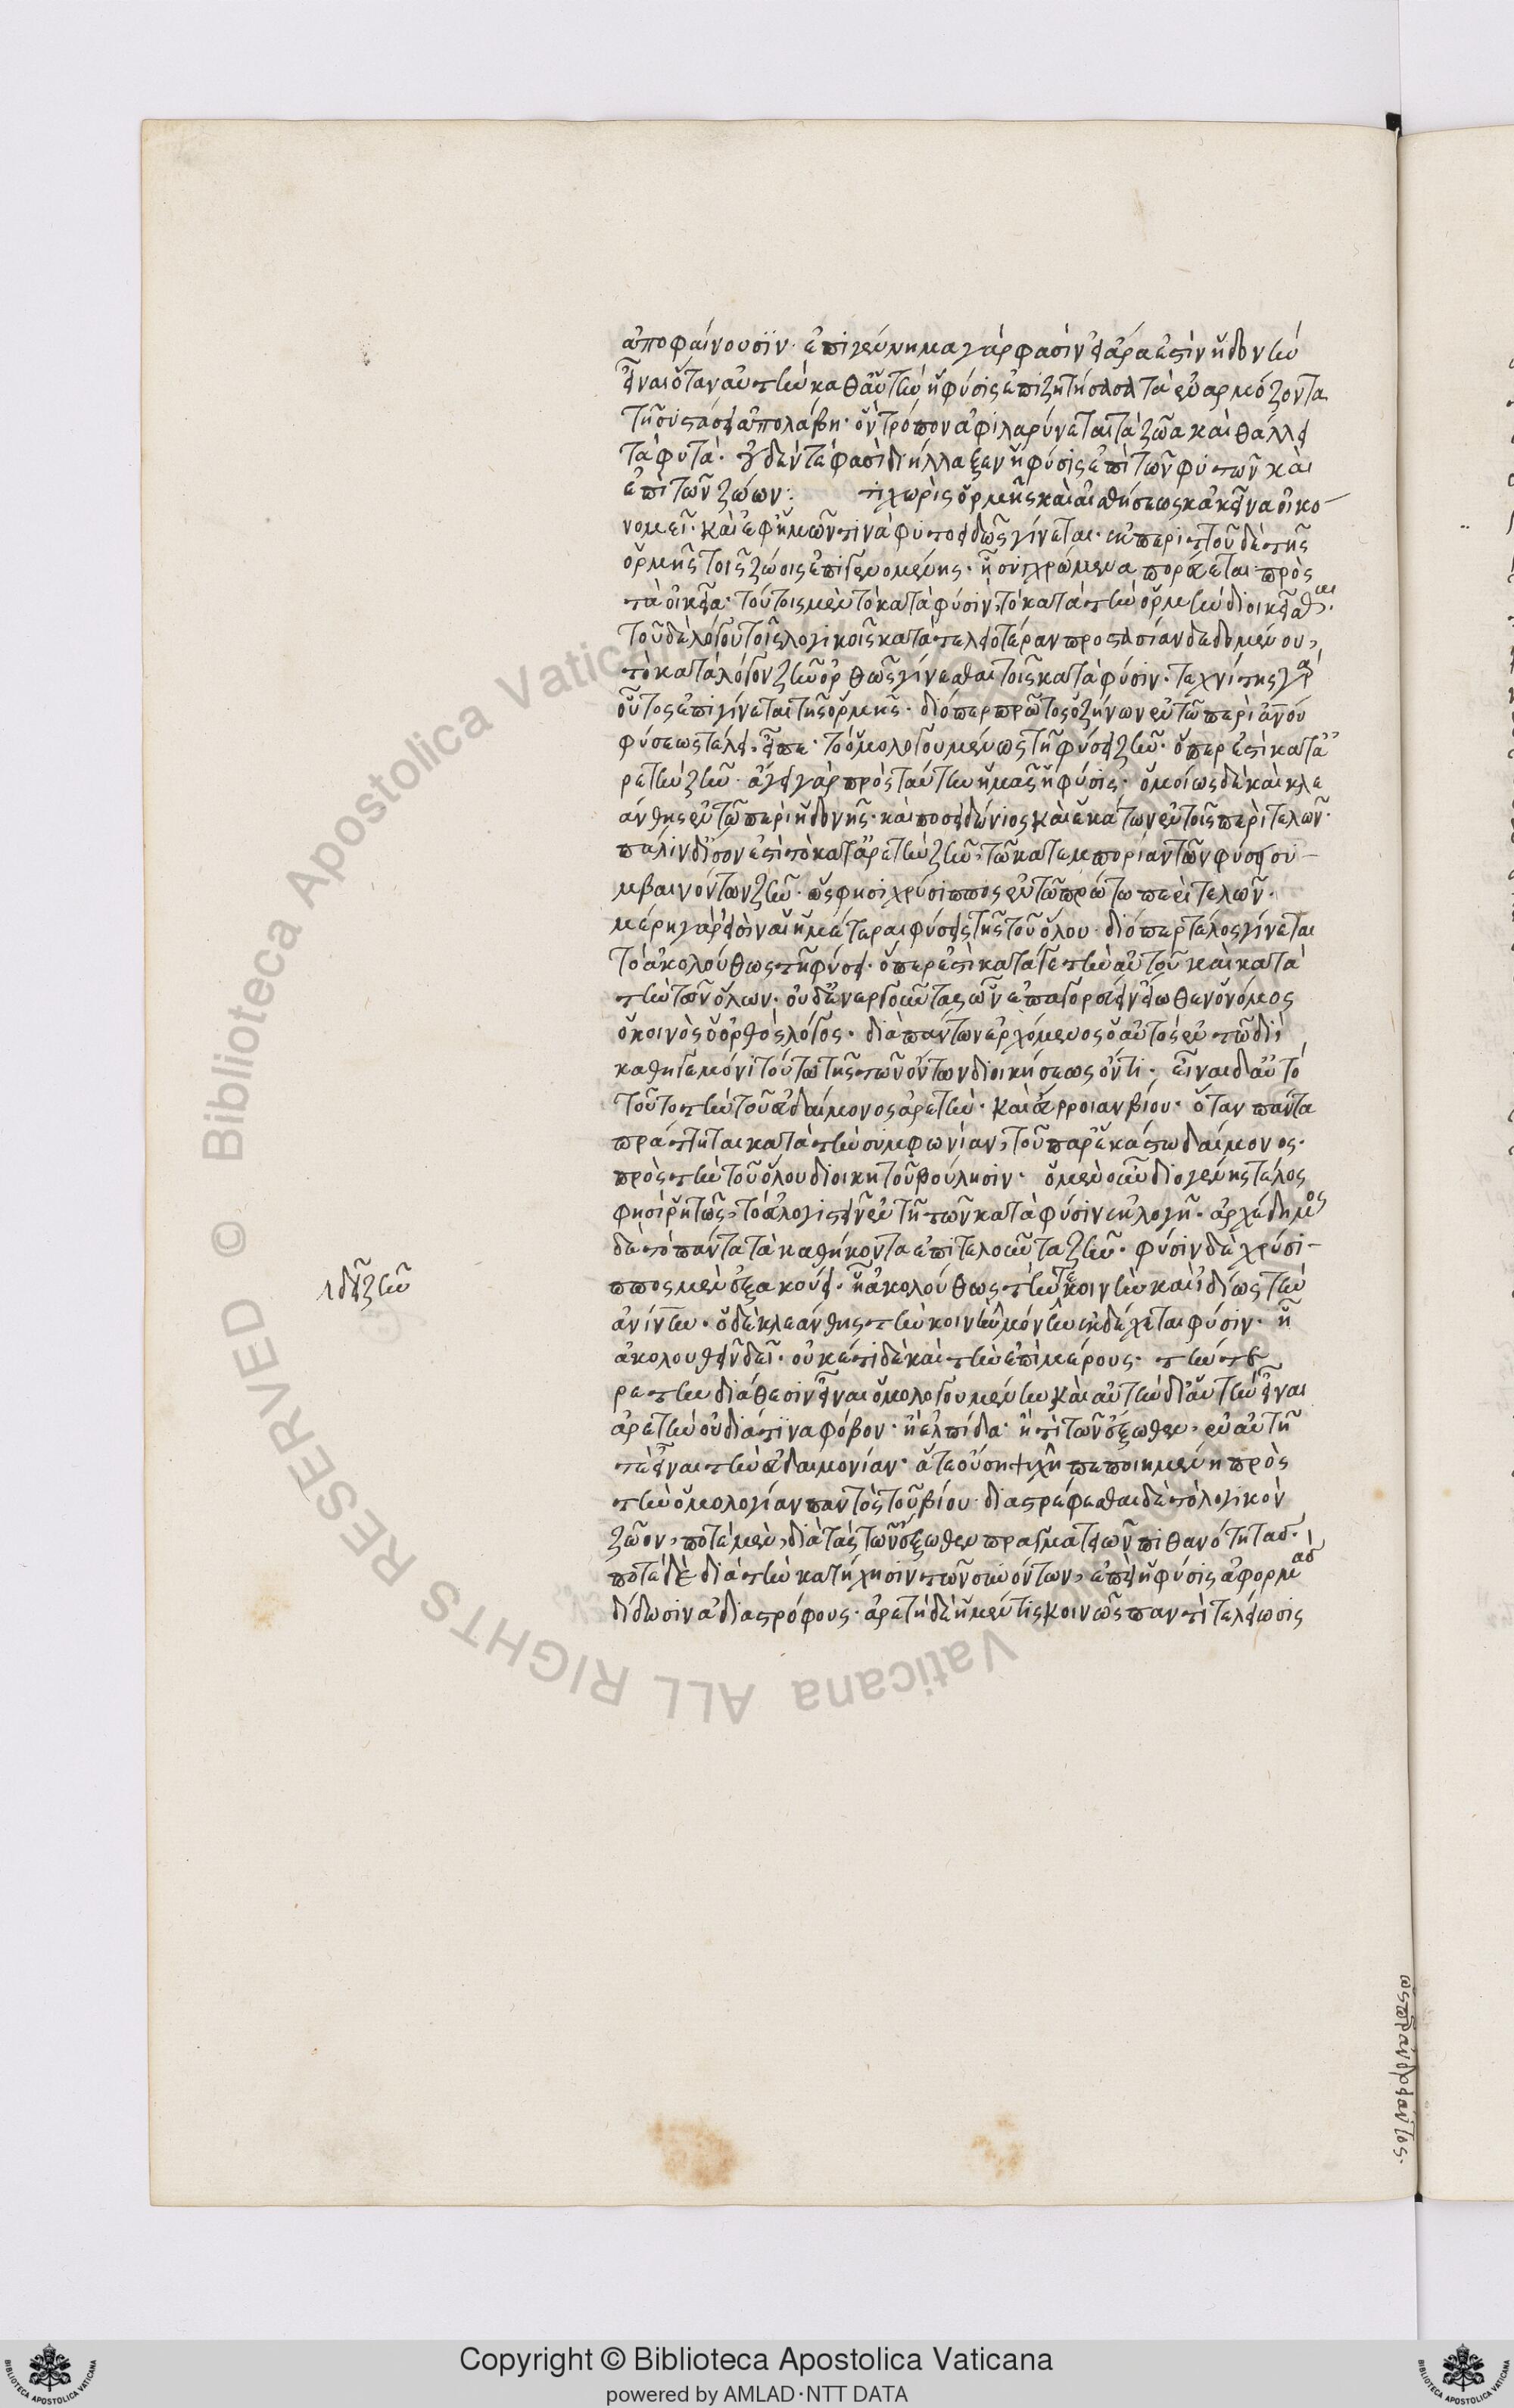 ἀποφαίνουσϊν· ἐπιγέννημα γάρ φασὶν εἰ ἄρα ἐστὶν ἡδονὴν
εἶναι ὅταν αὐτὴν καθ αὑτὴν ἡ φύσις ἐπιζητήσασα τὰ ἐναρμόζοντα
τῆ συστάσει ἀπολάβη· ὃν τρόπον ἀφιλαρύνεται τὰ ζῶα καὶ θάλλει
τὰ φυτά· οὐδέν τέ φασὶ διήλλαξεν ἡ φύσις ἐπὶ τῶν φυτῶν καὶ
ἐπὶ τῶν ζώων· τι χωρὶς ὁρμῆς καὶ αἰσθήσεως κἀκεῖνα οἰκο-
νομεῖ· καὶ ἐφ ἡμῶν τινὰ φυτοειδῶς γίνεται· ἐκ περιττοῦ δὲ τῆς
ὁρμῆς τοῖς ζώοις ἐπιγενομένης· ἧ συγχρώμενα πορεύεται πρὸς
τὰ οἰκεῖα· τούτοις μὲν τὸ κατὰ φύσιν, τὸ κατὰ τὴν ὁρμὴν διοικεῖσθαι·
τοῦ δὲ λόγου τοῖς λογικοῖς κατὰ τελειοτέραν προστασίαν δεδομένου,
τὸ κατὰ λόγον ζῆν ὀρθῶς γίνεσθαι τοῖς κατὰ φύσιν· τεχνίτης γὰρ
οὗτος ἐπιγίνεται τῆς ὁρμῆς· διόπερ πρῶτος ὁ ζήνων ἐν τῶ περὶ ἀνου
φύσεως τέλει· εἶπε· τὸ ὁμολογουμένως τῆ φύσει ζῆν· ὅπερ ἐστὶ κατ ἀ
ρετὴν ζῆν· ἄγει γὰρ πρὸς ταύτην ἡμᾶς ἡ φύσις· ὁμοίως δὲ καὶ κλε
άνθης ἐν τῶ περὶ ἡδονῆς· καὶ ποσειδώνιος καὶ ἑκάτων ἐν τοῖς περὶ τελῶν·
πάλιν δ ἴσον ἐστὶ τὸ κατ ἀρετὴν ζῆν, τῶ κατ ἐμπορίαν τῶν φύσει συ-
μβαινόντων ζῆν· ὥς φησι χρύσιππος ἐν τῶ πρώτω περὶ τελῶν·
μέρη γάρ εἰσὶν αἱ ἡμέτεραι φύσεις τῆς τοῦ ὅλου· διόπερ τέλος γίνεται
τὸ ἀκολούθως τῆ φύσει· ὅπερ ἐστὶ κατά γε τὴν αὑτοῦ καὶ κατὰ
τὴν τῶν ὅλων· οὐδὲν ἐργοῦντας ὧν ἐπαγορεύειν εἴωθεν ὁ νόμος
ὁ κοινὸς ὁ ὀρθὸς λόγος· διὰ πάντων ἐρχόμενος ὁ αὐτὸς ἐν τῶ διὶ
καθηγεμόνι τούτω τῆς τῶν ὄντων διοικήσεως ὄντι· εἶναι δ αὐτὸ
τοῦτο τὴν τοῦ εὐδαίμονος ἀρετὴν· καὶ εὔρροιαν βίου· ὅταν πάντα
πράττηται κατὰ τὴν συμφωνίαν, τοῦ παρ ἑκάστω δαίμονος·
πρὸς τὴν τοῦ ὅλου διοικητοῦ βούλησιν· ὁ μὲν οὖν διογένης τέλος
φησὶ ῥητῶς, τὸ εὐλογιστεῖν ἐν τῆ τῶν κατὰ φύσιν ἐκλογῆ· ἀρχέδημος
δὲ τὸ πάντα τὰ καθήκοντα ἐπιτελοῦντα ζῆν· φύσιν δὲ χρύσι-
ππος μὲν ἐξακούει· ἧ ἀκολούθως τήν τε κοινὴν καὶ ἰδίως τὴν
ἀνίνην· ὁ δὲ κλεάνθης τὴν κοινὴν μόνην ἐκδέχεται φύσιν· ἧ
ἀκολουθεῖν δεῖ· οὐκέτι δὲ καὶ τὴν ἐπὶ μέρους· τήν τε
ρετην διάθεσιν εἶναι ὁμολογουμένην καὶ αὐτὴν δι αὑτὴν εἶναι
ἀρετὴν οὐ διά τϊνα φόβον· ἢ ἐλπίδα· ἤ τι τῶν ἔξωθεν· ἐν αὐτῆ
τὲ εἶναι τὴν εὐδαιμονίαν· ἅτε οὔση ψυχῆ πεποιημένη πρὸς
τὴν ὁμολογίαν παντὸς τοῦ βίου· διαστρέφεσθαι δὲ τὸ λογικὸν
ζῶον, ποτὲ μὲν, διὰ τὰς τῶν ἔξωθεν πραγματειῶν πιθανότητας·
ποτὲ δὲ διὰ τὴν κατήχησιν τῶν συνόντων, ἐπεὶ ἡ φύσις ἀφορμὰς
δίδωσιν ἀδιαστρόφους· ἀρετὴ δὲ ἡ μέν τις κοινῶς παντὶ τελείωσις
ὥσπερ ἀνδριάντος·
Copyright © Biblioteca Apostolica Vaticana
powered by AMLAD·NTT DATA
Biblioteca Apostolica Vaticana ALL RIGHTS RESERVED ©